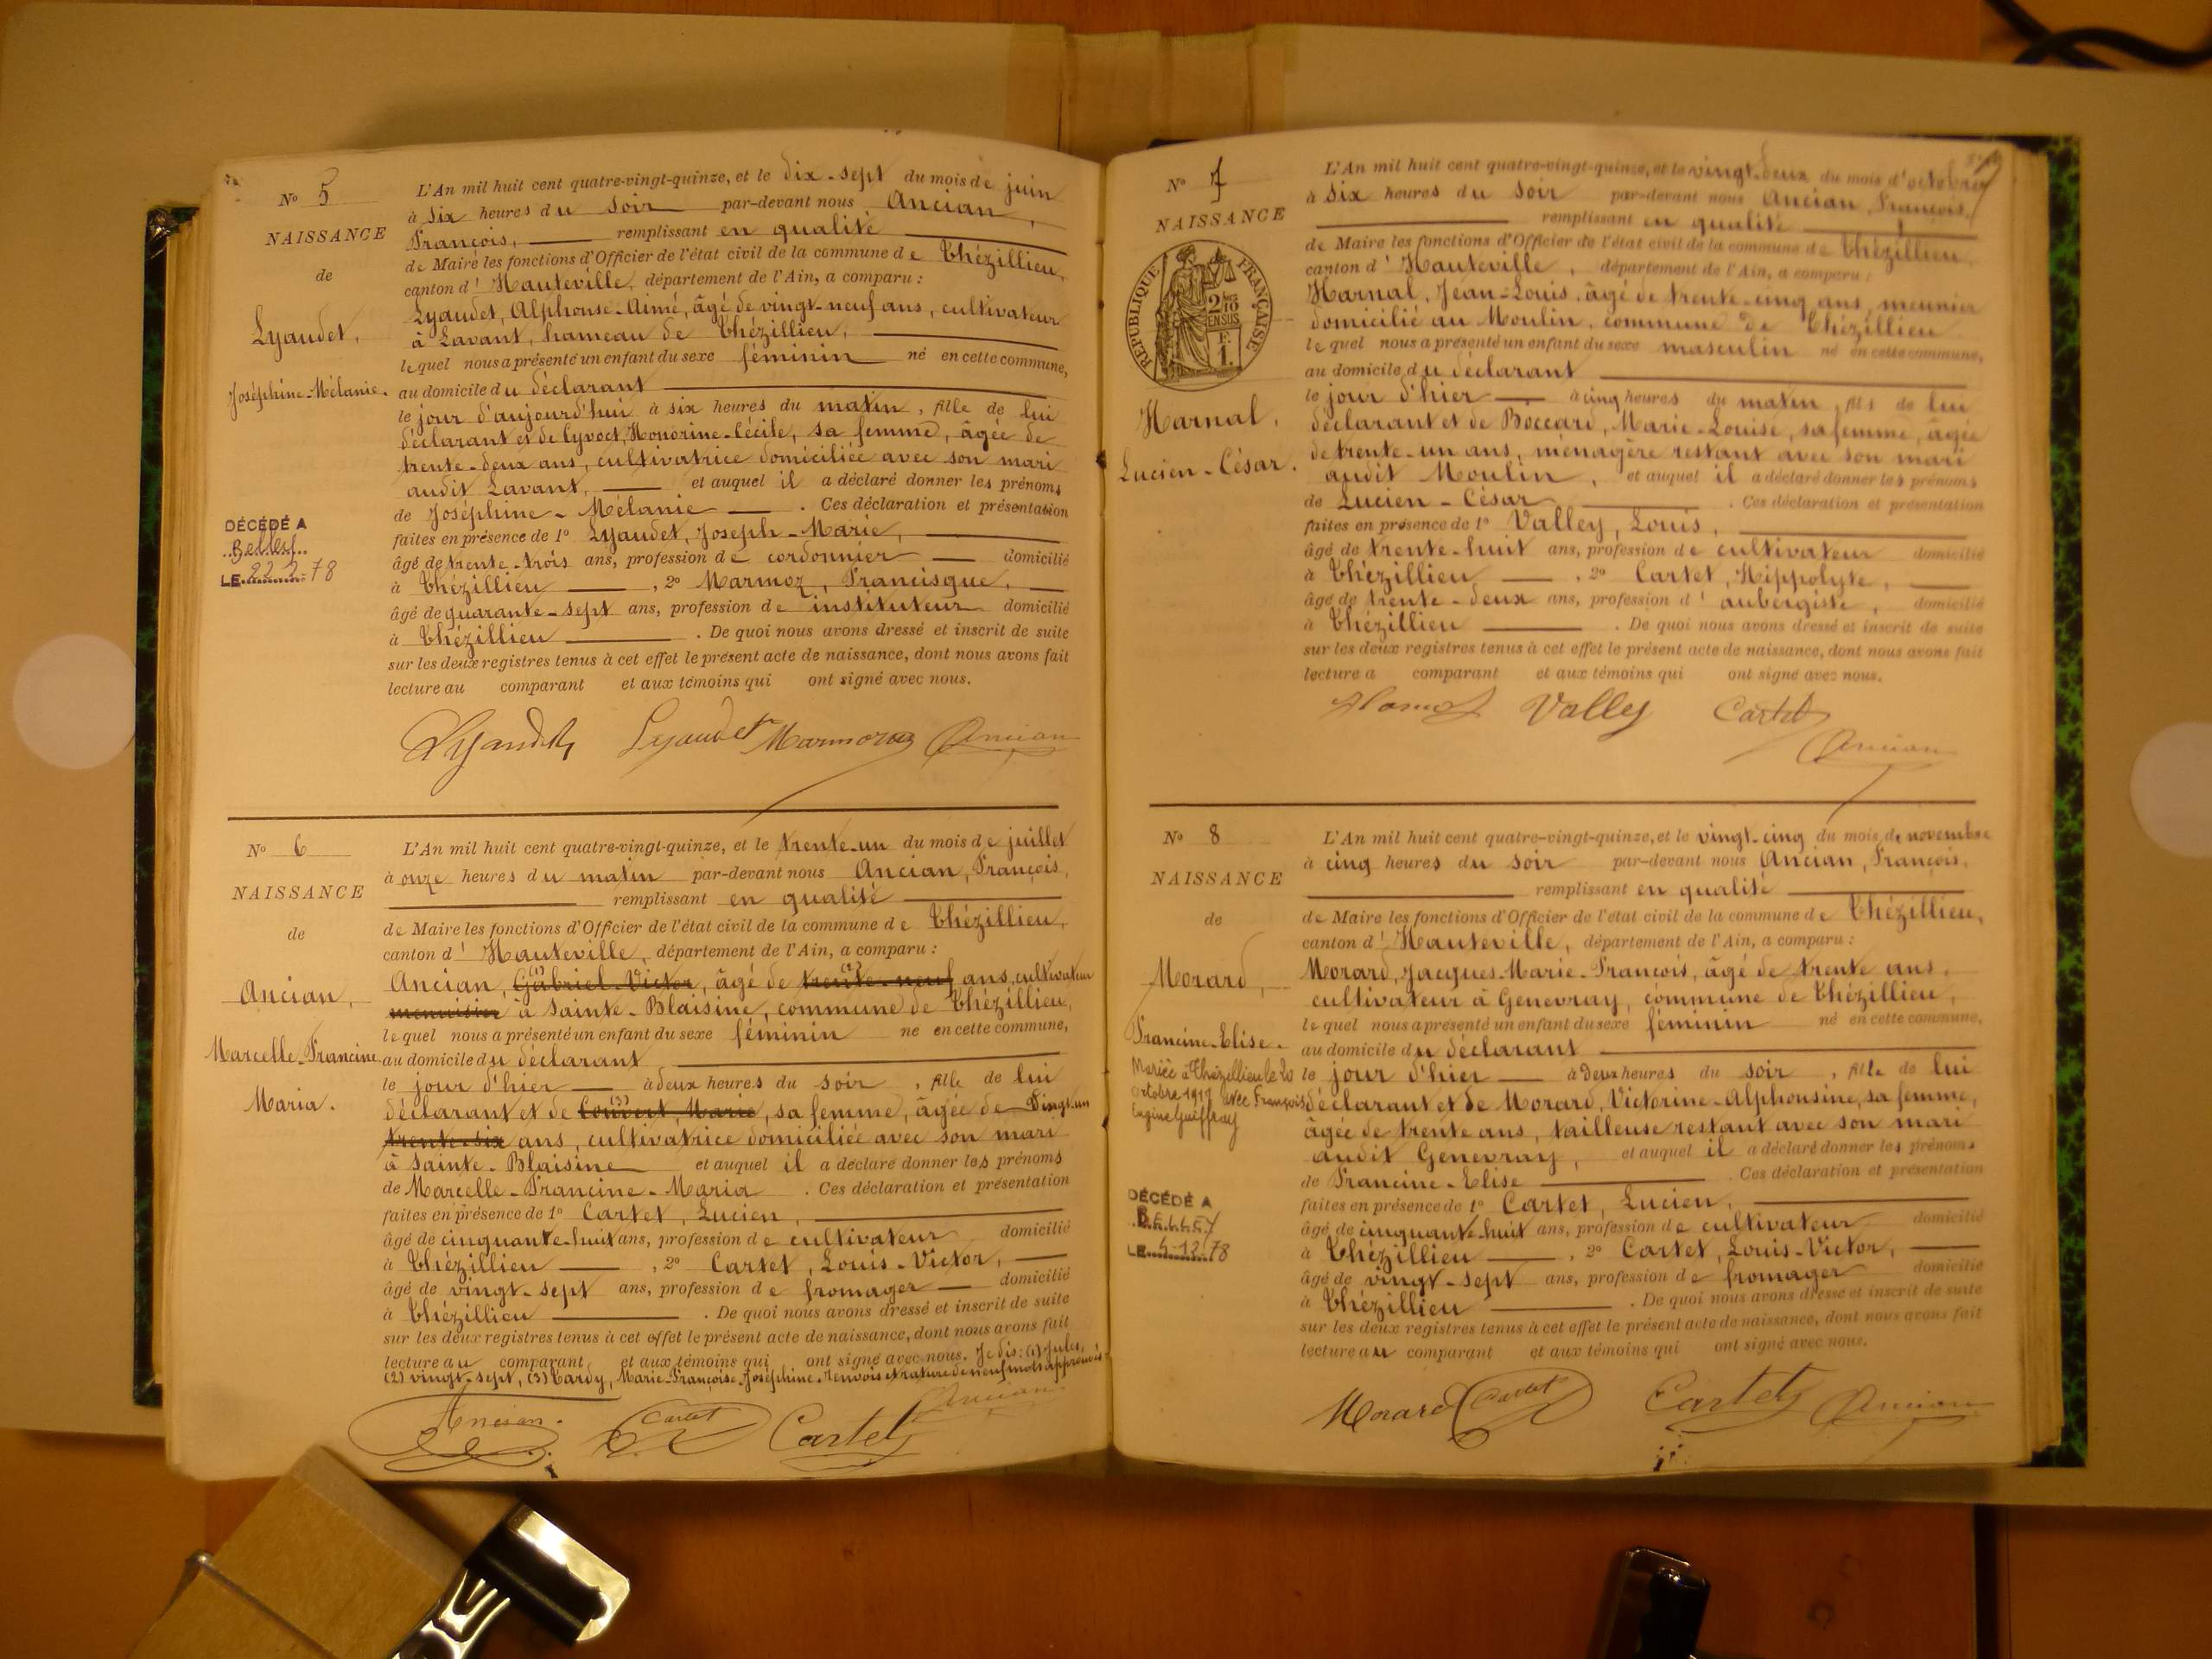 No 5
NAISSANCE
de
Lyaudet,
Joséphine-Mélanie.
DÉCÉDÉ A
Belley
LE 22.2.78
L'An mil huit cent quatre-vingt-quinze, et le dix-sept du mois de juin
à six heures du soir par-devant nous Ancian,
François, remplissant en qualité
de Maire les fonctions d'Officier de l'état civil de la commune de Thézillieu,
canton d' Hauteville, département de l'Ain, a comparu :
Lyaudet, Alphonse-Aimé, âgé de vingt-neuf ans, cultivateur
à Lavant, hameau de Thézillieu,
lequel nous a présenté un enfant du sexe féminin né en cette commune,
au domicile du déclarant
le jour d'aujourd'hui à six heures du matin, fille de lui
déclarant et de Cyvoct, Honorine-Cécile, sa femme, âgée de
trente-deux ans, cultivatrice domiciliée avec son mari
audit Lavant, et auquel il a déclaré donner les prénoms
de Joséphine-Mélanie. Ces déclaration et présentation
faites en présence de 1° Lyaudet, Joseph-Marie,
âgé de trente-trois ans, profession de cordonnier domicilié
à Thézillieu, 2° Marmoz, Francisque,
âgé de quarante-sept ans, profession de instituteur domicilié
à Thézillieu. De quoi nous avons dressé et inscrit de suite
sur les deux registres tenus à cet effet le présent acte de naissance, dont nous avons fait
lecture au comparant et aux témoins qui ont signé avec nous.
Lyaudet Lyaudet Marmoz Ancian
No 6
NAISSANCE
de
Ancian,
Marcelle-Francine
Maria.
L'An mil huit cent quatre-vingt-quinze, et le trente-un du mois de juillet
à onze heures du matin par-devant nous Ancian, François,
remplissant en qualité
de Maire les fonctions d'Officier de l'état civil de la commune de Thézillieu,
canton d' Hauteville, département de l'Ain, a comparu :
Ancian, (1) Gabriel-Victor, âgé de (2) trente-neuf ans, cultivateur
menuisier à Sainte-Blaisine, commune de Thézillieu,
lequel nous a présenté un enfant du sexe féminin né en cette commune,
au domicile du déclarant
le jour d'hier à deux heures du soir, fille de lui
déclarant et de (3) Convert, Marie, sa femme, âgée de Vingt-un
trente-six ans, cultivatrice domiciliée avec son mari
à Sainte-Blaisine et auquel il a déclaré donner les prénoms
de Marcelle-Francine-Maria. Ces déclaration et présentation
faites en présence de 1° Cartet, Lucien,
âgé de cinquante-huit ans, profession de cultivateur domicilié
à Thézillieu, 2° Cartet, Louis-Victor,
âgé de vingt-sept ans, profession de fromager domicilié
à Thézillieu. De quoi nous avons dressé et inscrit de suite
sur les deux registres tenus à cet effet le présent acte de naissance, dont nous avons fait
lecture au comparant et aux témoins qui ont signé avec nous. Je dis: (1) Jules,
(2) vingt-sept, (3) Tardy, Marie-Françoise-Joséphine. Renvois et rature de neuf mots approuvés.
Ancian Cartet Cartet Ancian
No 7
NAISSANCE
RÉPUBLIQUE FRANÇAISE
2/10
EN SUS
F.
1.
Harnal,
Lucien-César.
L'An mil huit cent quatre-vingt-quinze, et le vingt-deux du mois d'octobre
à six heures du soir par-devant nous Ancian, François,
remplissant en qualité
de Maire les fonctions d'Officier de l'état civil de la commune de Thézillieu,
canton d' Hauteville, département de l'Ain, a comparu :
Harnal, Jean-Louis, âgé de trente-cinq ans, meunier
domicilié au Moulin, commune de Thézillieu
lequel nous a présenté un enfant du sexe masculin né en cette commune,
au domicile du déclarant
le jour d'hier à cinq heures du matin, fils de lui
déclarant et de Boccard, Marie-Louise, sa femme, âgée
de trente-un ans, ménagère restant avec son mari
audit Moulin, et auquel il a déclaré donner les prénoms
de Lucien-César. Ces déclaration et présentation
faites en présence de 1° Valley, Louis,
âgé de trente-huit ans, profession de cultivateur domicilié
à Thézillieu, 2° Cartet, Hippolyte,
âgé de trente-deux ans, profession d' aubergiste, domicilié
à Thézillieu. De quoi nous avons dressé et inscrit de suite
sur les deux registres tenus à cet effet le présent acte de naissance, dont nous avons fait
lecture a comparant et aux témoins qui ont signé avec nous.
Harnal Valley Cartet
Ancian
No 8
NAISSANCE
de
Morard,
Francine-Elise.
Mariée à Thézillieu le 20
octobre 1917 avec François
Eugène Guiffray
DÉCÉDÉ A
BELLEY
LE 4-12-78
L'An mil huit cent quatre-vingt-quinze, et le vingt-cinq du mois de novembre
à cinq heures du soir par-devant nous Ancian, François,
remplissant en qualité
de Maire les fonctions d'Officier de l'état civil de la commune de Thézillieu,
canton d' Hauteville, département de l'Ain, a comparu :
Morard, Jacques-Marie-François, âgé de trente ans,
cultivateur à Genevray, commune de Thézillieu,
lequel nous a présenté un enfant du sexe féminin né en cette commune,
au domicile du déclarant
le jour d'hier à deux heures du soir, fille de lui
déclarant et de Morard, Victorine-Alphonsine, sa femme,
âgée de trente ans, tailleuse restant avec son mari
audit Genevray, et auquel il a déclaré donner les prénoms
de Francine-Elise. Ces déclaration et présentation
faites en présence de 1° Cartet, Lucien,
âgé de cinquante-huit ans, profession de cultivateur domicilié
à Thézillieu, 2° Cartet, Louis-Victor,
âgé de vingt-sept ans, profession de fromager domicilié
à Thézillieu. De quoi nous avons dressé et inscrit de suite
sur les deux registres tenus à cet effet le présent acte de naissance, dont nous avons fait
lecture au comparant et aux témoins qui ont signé avec nous.
Morard Cartet Cartet Ancian